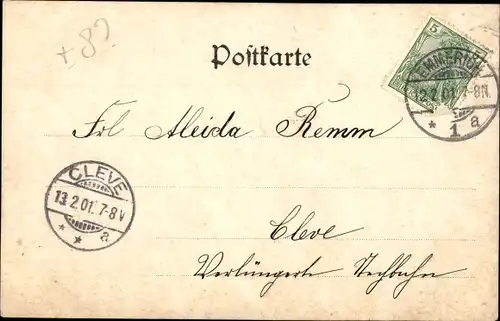 ± 8?
5
Postkarte
EMMERICH
12.2.01. 7-8N.
* 1 a
Frl. Aleida Remm
CLEVE
13.2.01. 7-8V
* * a
Cleve
Verlüngerte